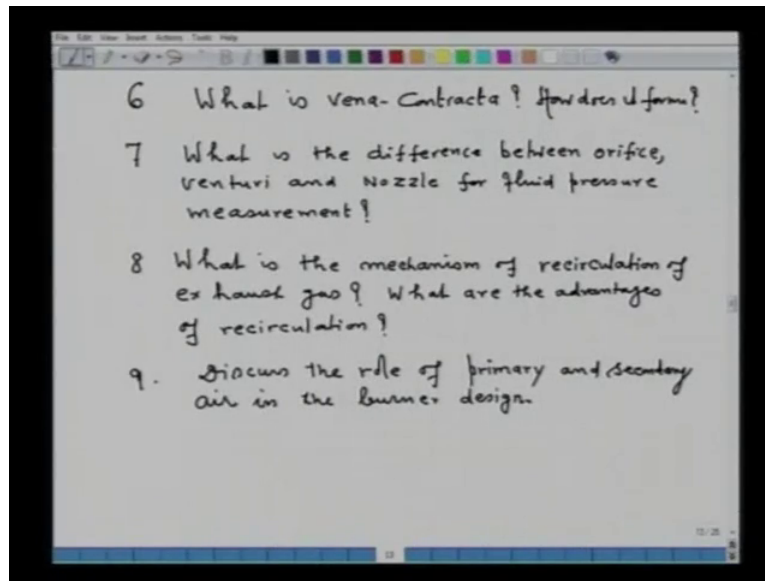 File Edit View Insert Actions Tools Help
6 What is Vena-Contracta? How does it forms?
7 What is the difference between orifice,
venturi and Nozzle for fluid pressure
measurement?
8 What is the mechanism of recirculation of
exhaust gas? What are the advantages
of recirculation?
9. Discuss the role of primary and secondary
air in the burner design.